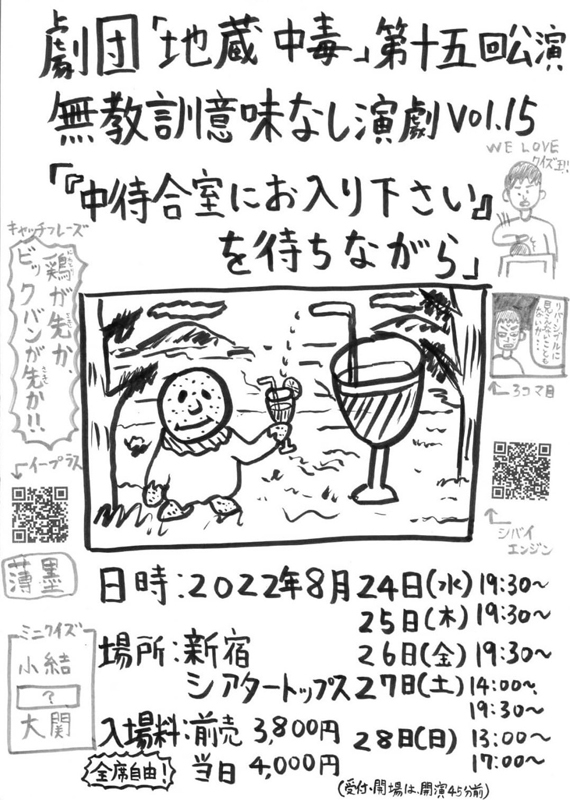 劇団「地蔵中毒」第十五回公演
無教訓意味なし演劇vol.15
「『中待合室にお入り下さい』
を待ちながら」
WE LOVE
クイズ王!!
キャッチフレーズ
鶏が先か、
ビックバンが先か!!
3コマ目
イープラス
シバイ
エンジン
薄墨
ミニクイズ
小結
?
大関
日時:2022年8月24日(水)19:30~
25日(木)19:30~
26日(金)19:30~
27日(土)14:00~、
19:30~
28日(日)13:00~
17:00~
場所:新宿
シアタートップス
入場料:前売 3,800円
当日 4,000円
全席自由!
(受付・開場は、開演45分前)